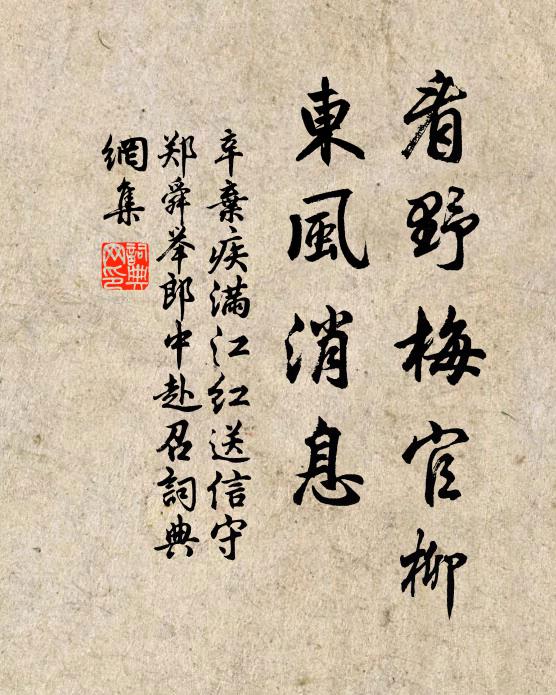 看野梅官柳
東風消息
辛棄疾滿江红送信守
郑舜举郎中赴召詞典
網集
詞典
网印